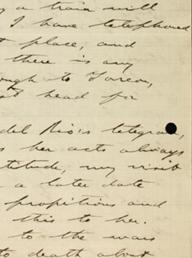 a train will
I have telephoned
place, and
there is any
to
head for
del Rio's telegram,
her acts always
my visit
a later date
propitious and
this to her.
to the
to death about